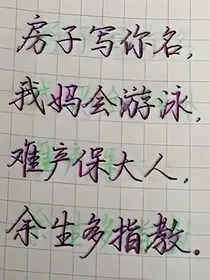 房子写你名，
我妈会游泳，
难产保大人，
余生多指教。